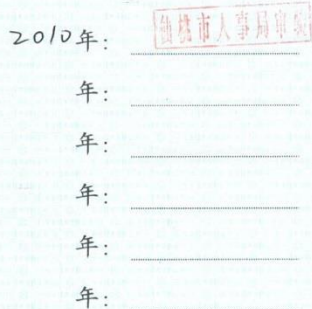 2010年：仙桃市人事局审核
年：
年：
年：
年：
年：